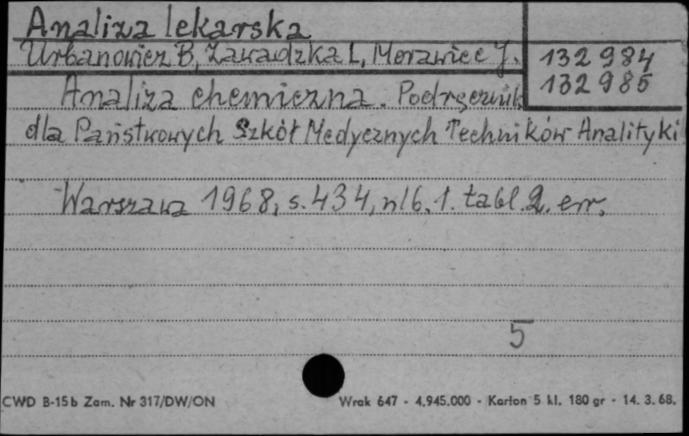 Analiza lekarska
Urbanowicz B, Zawadzka L, Morawiec J.
132 984
132 985
Analiza chemiczna. Podręcznik
dla Państwowych Szkół Medycznych Techników Analityki
Warszawa 1968, s. 434, nl 6, 1. tabl. 2. err.
5
CWD B-15b Zam. Nr 317/DW/ON
Wrak 647 - 4.945.000 - Karton 5 kl. 180 gr - 14. 3. 68.